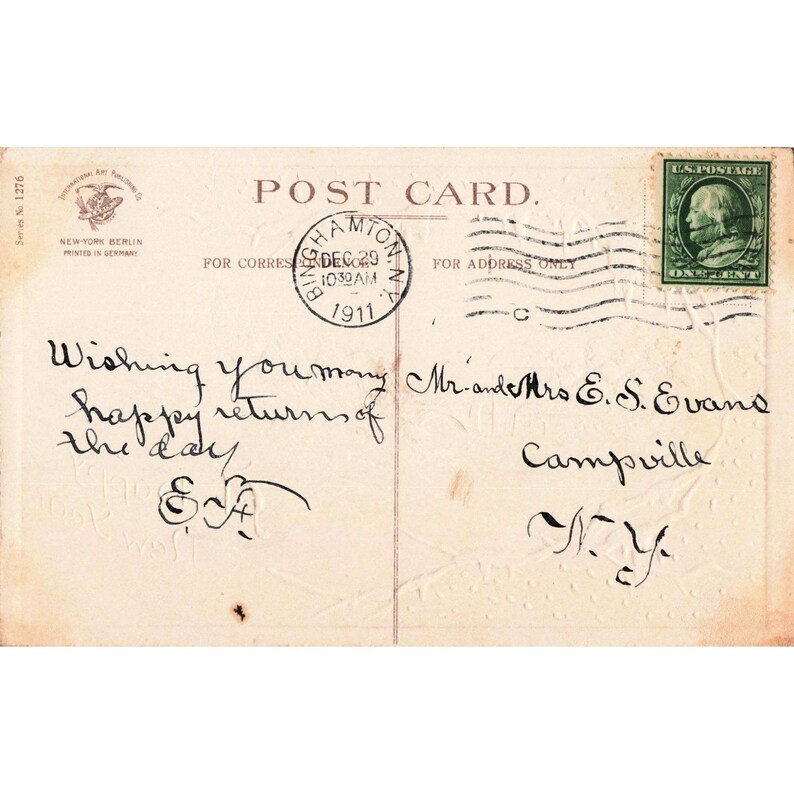 Series No. 1276
INTERNATIONAL ART PUBLISHING CO.
NEW-YORK BERLIN
PRINTED IN GERMANY
POST CARD.
FOR CORRESPONDENCE
FOR ADDRESS ONLY
BINGHAMTON, N.Y.
DEC 29
10 30 AM
1911
C
U.S. POSTAGE
ONE CENT
Wishing you many
happy returns of
the day
E. F.
Mr. and Mrs E. S. Evans
Campville
N. Y.
Happy
New Year